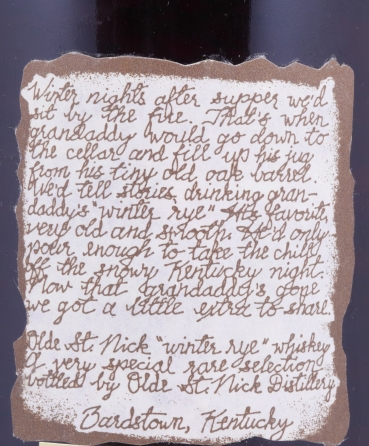 Winter nights after supper we'd
sit by the fire. That's when
grandaddy would go down to
the cellar and fill up his jug
from his tiny old oak barrel
We'd tell stories, drinking gran-
daddy's "winter rye" His favorite
very old and smooth. He'd only
pour enough to take the chill
off the snowy Kentucky night.
Now that grandaddy's gone
we got a little extra to share.
Olde St. Nick "winter rye" whiskey
A very special rare selection
bottled by Olde St. Nick Distillery
Bardstown, Kentucky